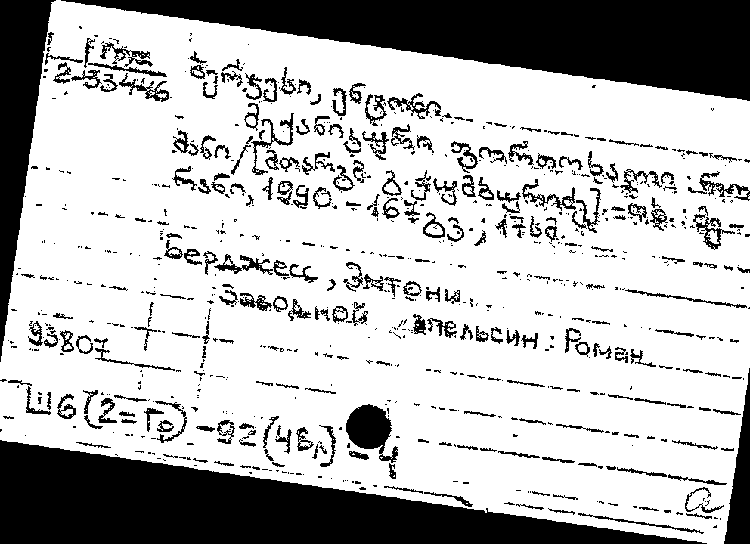 1 Груз
2-33446
ბერჯესი, ენტონი.
მექანიკური ფორთოხალი : რო-
მანი / [მთარგმ. გ. ჭუმბურიძე]. - თბ. : მე-
რანი, 1990. - 167 გვ. ; 17 სმ.
Берджесс, Энтони.
Заводной апельсин : Роман
93807
Ш6(2=Гр)-92(4Вл)-4
а